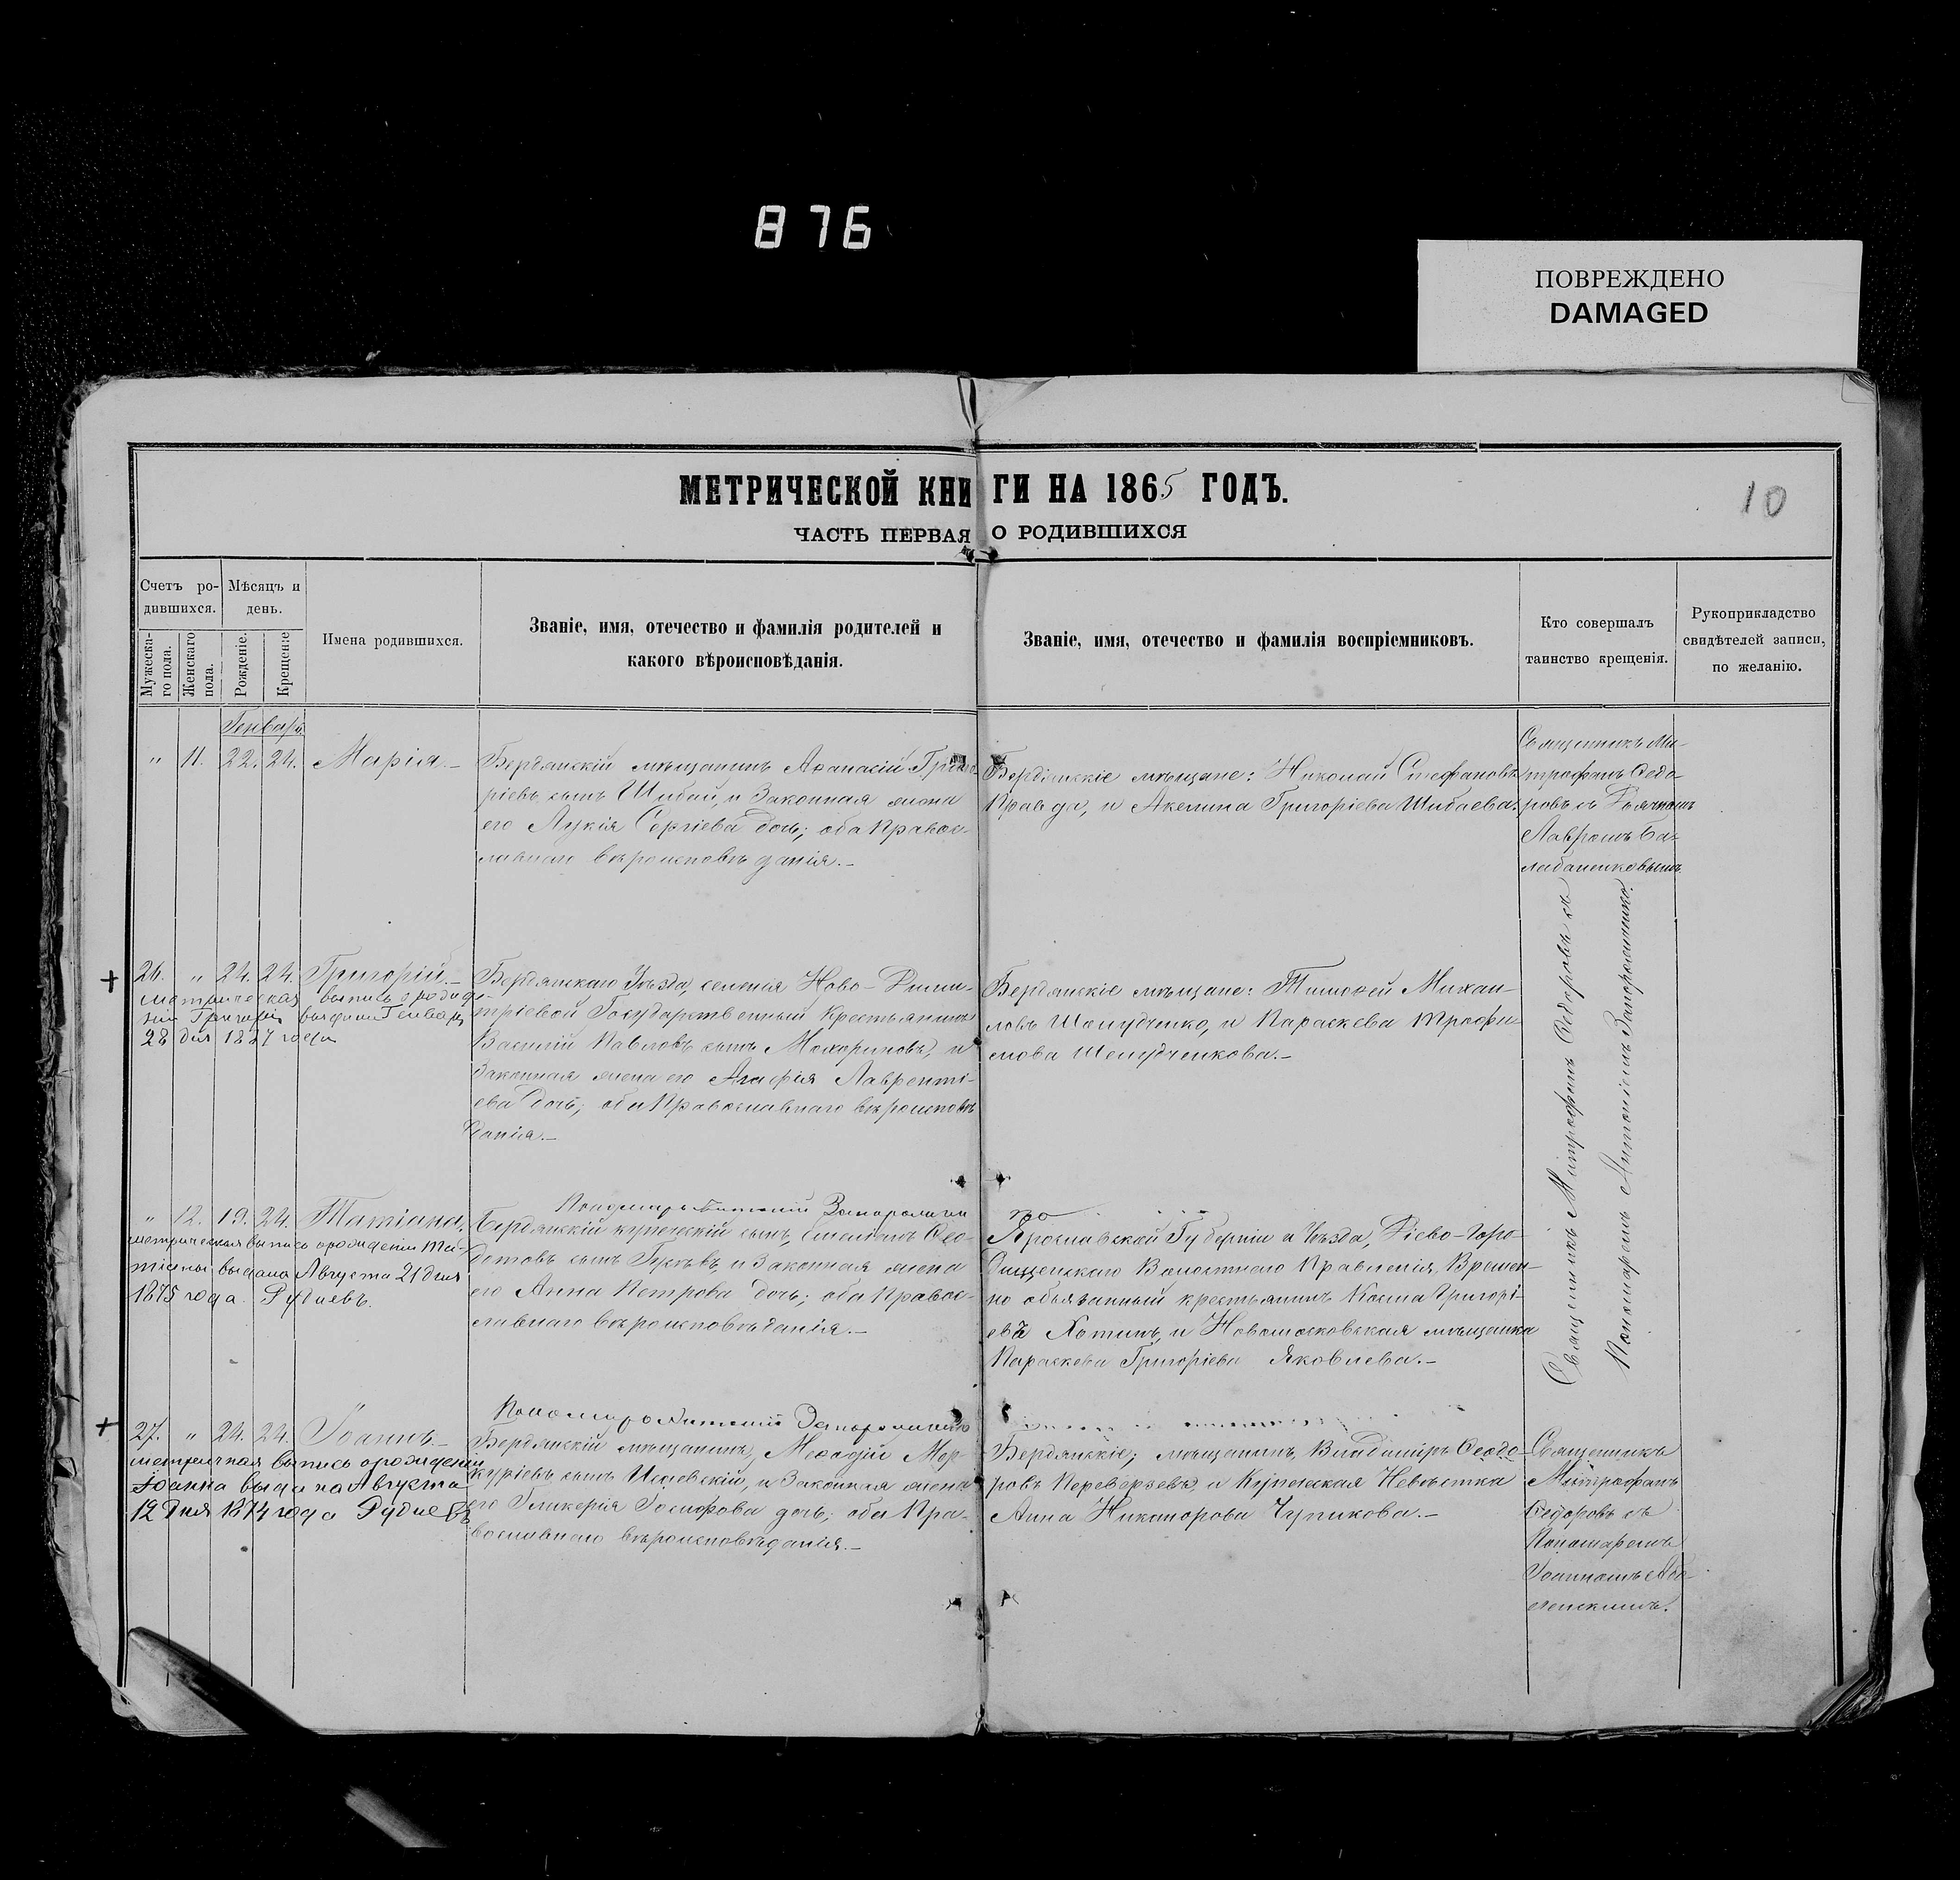 876
ПОВРЕЖДЕНО
DAMAGED
МЕТРИЧЕСКОЙ КНИГИ НА 1865 ГОДЪ.
10
ЧАСТЬ ПЕРВАЯ О РОДИВШИХСЯ
Счетъ ро-
дившихся.
Мѣсяцъ и
день.
Мужеска-
го пола.
Женскаго
пола.
Рожденіе.
Крещеніе
Имена родившихся.
Званіе, имя, отечество и фамилія родителей и
какого вѣроисповѣданія.
Званіе, имя, отечество и фамилія воспріемниковъ.
Кто совершалъ
таинство крещенія.
Рукоприкладство
свидѣтелей записи,
по желанію.
Генваря
" 11. 22. 24. Марія.-
Бердянскій мѣщанинъ Аѳанасій Григо-
ріевъ сынъ Шибай, и законная жена
его Лукія Сергіева дочь; оба Правос-
лавнаго вѣроисповѣданія.-
Бердянскіе мѣщане: Николай Стефановъ
Правда, и Акелина Григоріева Шибаева.
Священникъ Ми-
трофанъ Ѳедо-
ровъ съ Дьячкомъ
Лавромъ Ба-
лабаненковымъ
26. " 24. 24. Григорій.-
метрическая выпись о рожде-
нии Григорія выдана Генваря
28 дня 1887 года
Бердянскаго Уѣзда, селенія Ново-Дими-
тріевой Государственный Крестьянинъ
Василій Павловъ сынъ Махориновъ, и
законная жена его Агафія Лавренті-
ева дочь; оба Православнаго вѣроисповѣ
данія.-
Бердянскіе мѣщане: Тимоѳей Михаи-
ловъ Шелудченко, и Параскева Трофи-
мова Шелудченкова.-
Священникъ Митрофанъ Ѳедоровъ съ
Пономаремъ Антоніемъ Запорожцемъ.
Пономарь Антоній Запорожецъ
" 12. 19. 24. Татіана.
метрическая выпись о рожденіи Та-
тіаны выдана Августа 21 дня
1875 года. Рудневъ.
Бердянскій купеческій сынъ, Ѳео-
дотовъ сынъ и законная жена
его Анна Петрова дочь; оба Правос-
лавнаго вѣроисповѣданія.-
Ярославской Губерніи и Уѣзда, Діево-Горо-
дищенскаго Волостнаго Правленія, Времен-
но обязанный крестьянинъ Косма Григорі-
евъ Хотинъ, и Новомосковская мѣщанка
Параскева Григоріева Яковлева.-
Пономарь Антоній
27. " 24. 24. Іоаннъ.-
метричная выпись о рожденіи
Іоанна выдана Августа
12 дня 1874 года Рудневъ
Бердянскій мѣщанинъ, Меѳодій Мер-
куріевъ сынъ и законная жена
его Гликерія дочь; оба Пра-
вославнаго вѣроисповѣданія.-
Бердянскіе; мѣщанинъ, Владиміръ Ѳеодо-
ровъ Переверзевъ, и Купеческая Невѣстка
Анна Никанорова Чупикова.-
Священникъ
Митрофанъ
Ѳедоровъ съ
Пономаремъ
Іоанномъ